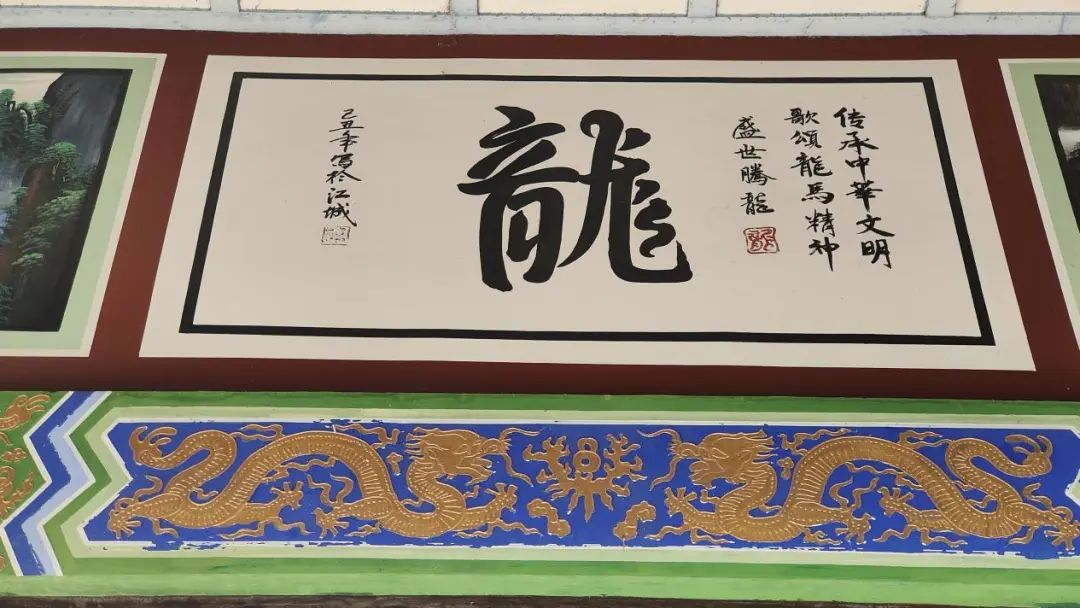 传承中华文明
歌頌龍馬精神
盛世騰龍
龍
己丑年写於江城